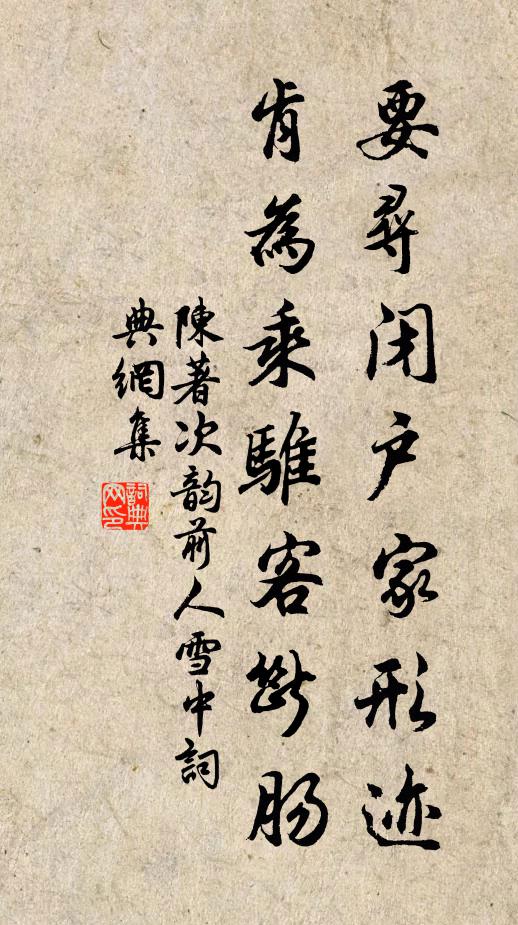 要寻闭户家形迹
肯為乘騅客断肠
陳著次韵前人雪中詞
典網集
詞典
网印